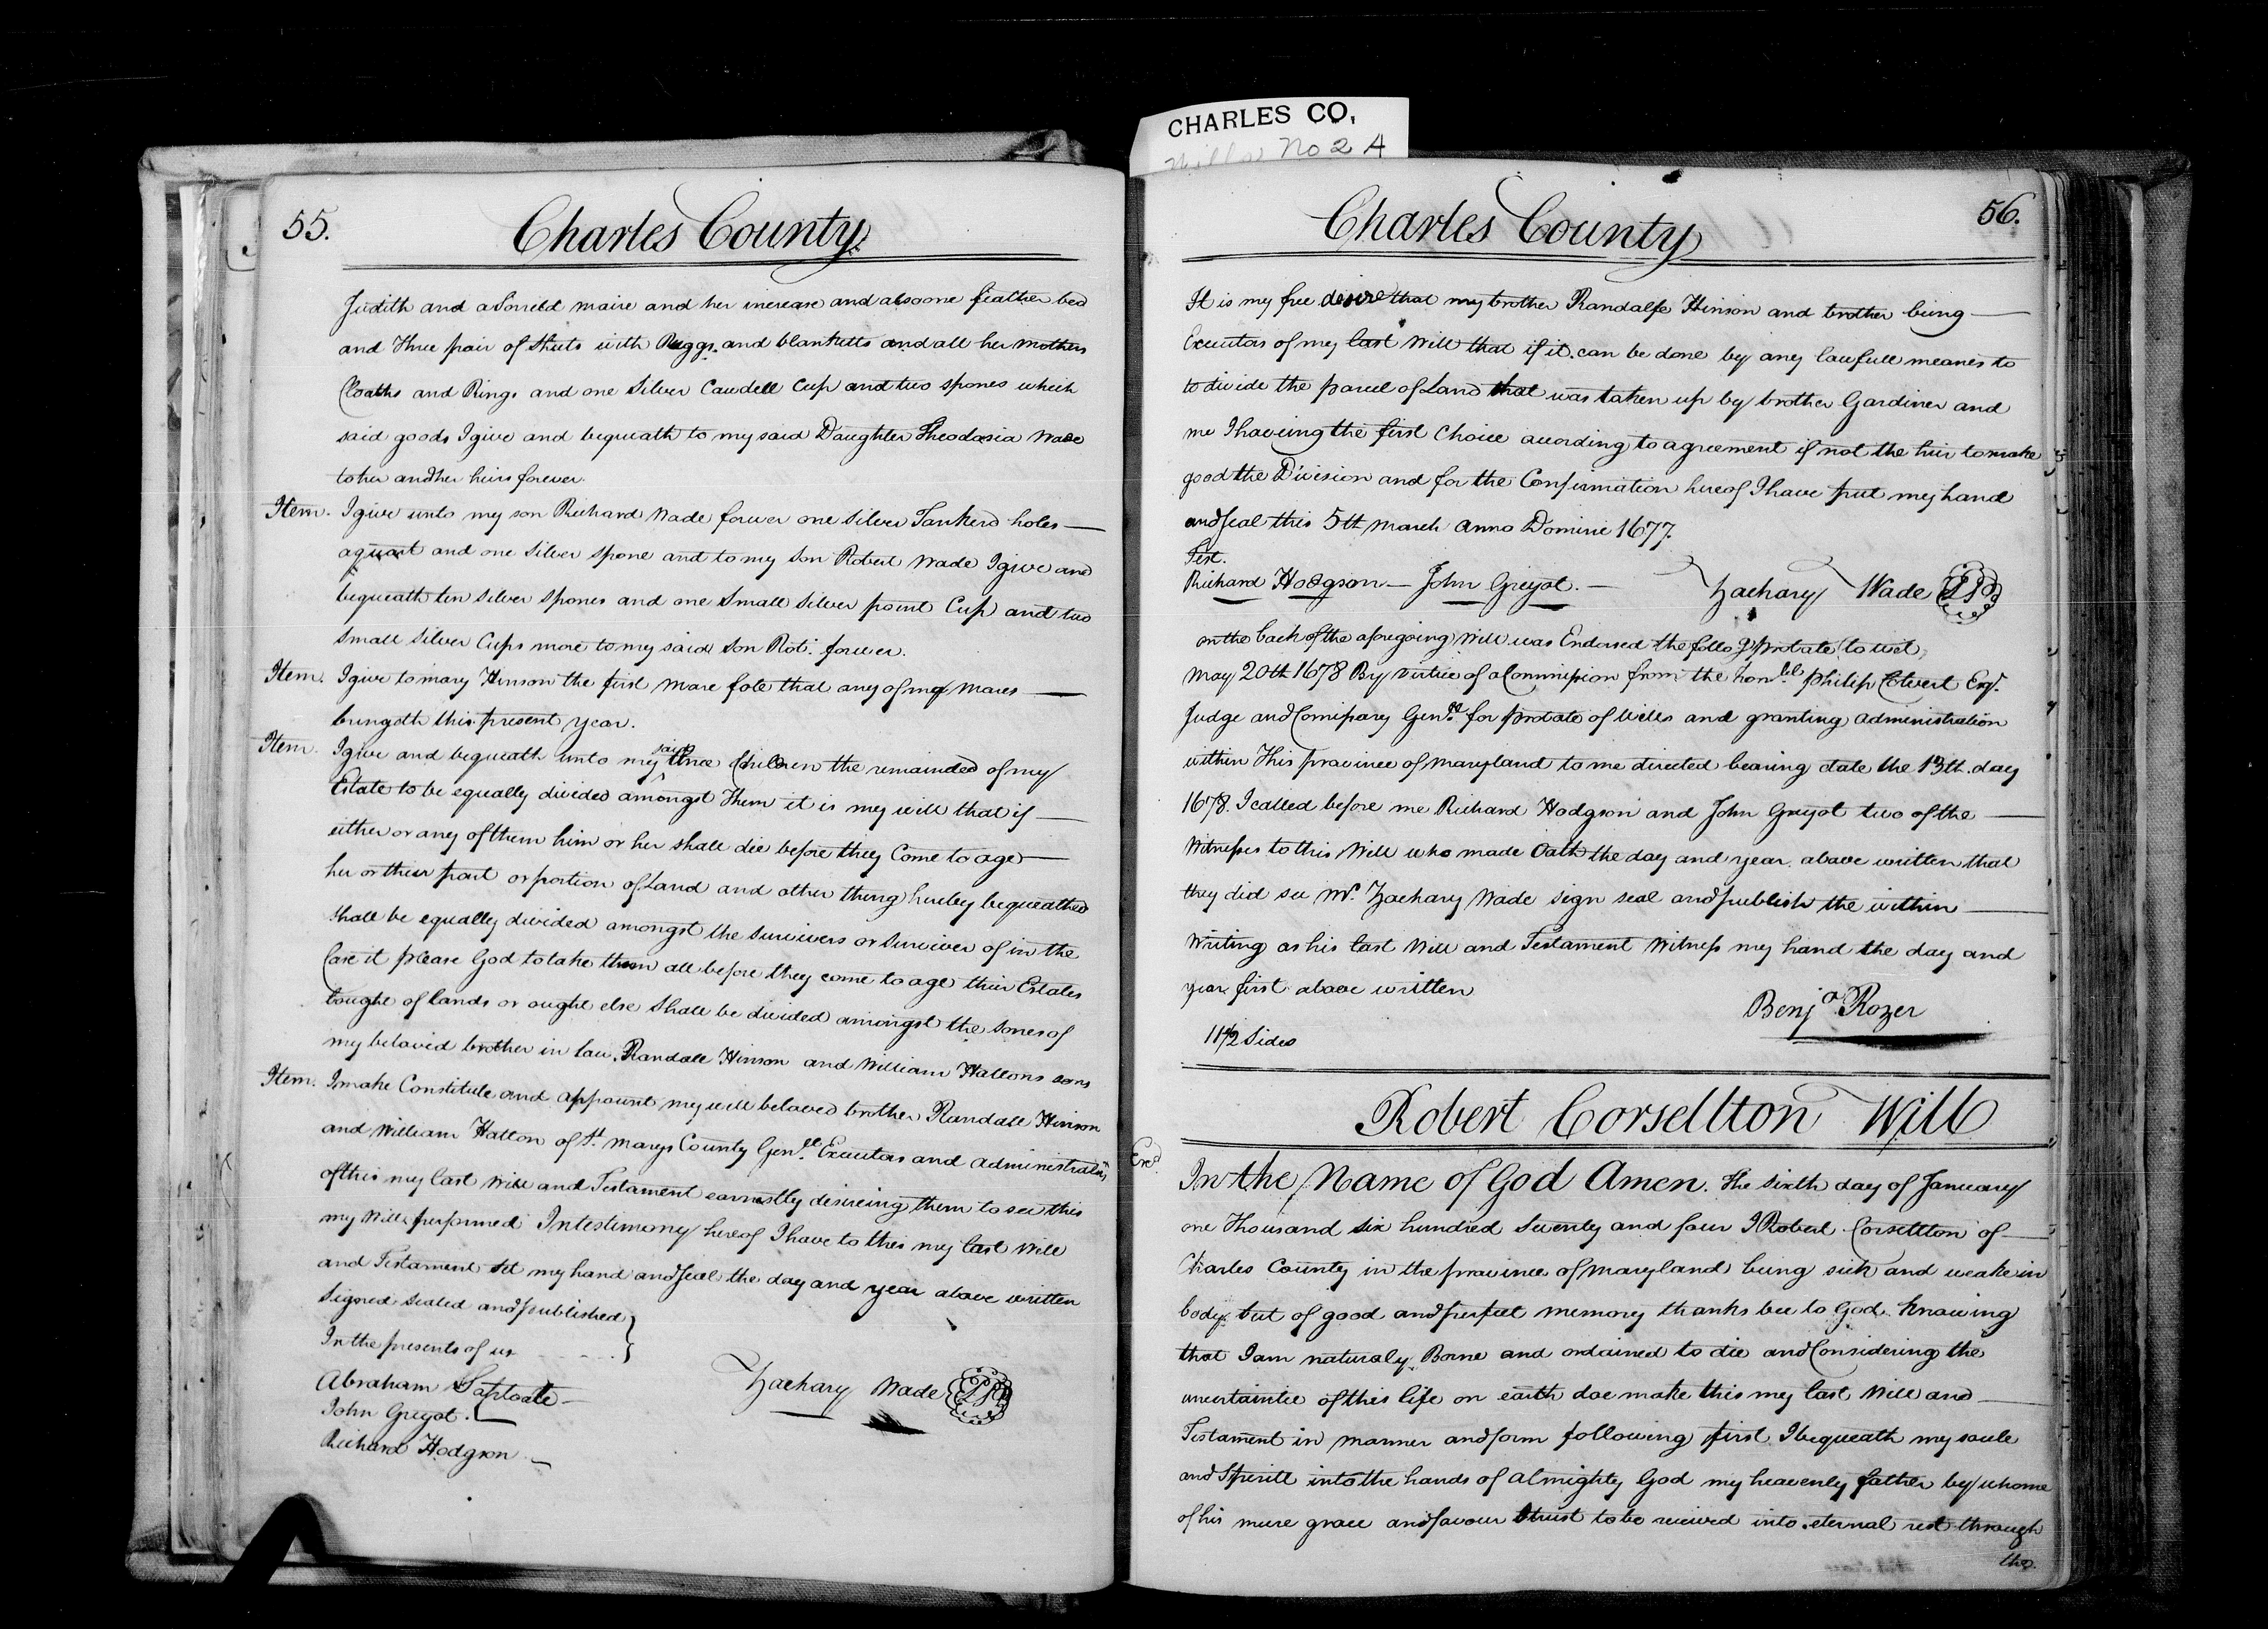 CHARLES CO,
Wills No 2 A
55.
Charles County
Judith and a Sorreld maire and her increase and also one feather bed
and three pair of Sheets with Ruggs and blanketts and all her mothers
Cloaths and Rings and one Silver Cawdell Cup and two spones which
said goods I give and bequeath to my said Daughter Theodasia Wade
to her and her heirs forever.
Item. I give unto my son Richard Wade forever one silver Tankerd holes
a quart and one silver spone and to my Son Robert Wade I give and
bequeath ten silver spones and one small silver point Cup and two
small silver Cups more to my said son Rot. forever.
Item. I give to mary Hinson the first mare fole that any of my mares
bringeth this present year.
Item. I give and bequeath unto my said three Children the remainded of my
Estate to be equally divided amongst them it is my will that if
either or any of them him or her shall die before they Come to age
her or their part or portion of Land and other thing hereby bequeathed
shall be equally divided amongst the survivers or surviver of in the
Case it please God to take them all before they come to age their Estates
tought of lands or ought else shall be divided amongst the sones of
my beloved brother in law, Randall Hinson and William Hattons sons
Item. I make Constitute and appoint my well beloved brother Randall Hinson
and William Hatton of St. Marys County Genll. Executors and administrators
of this my last Will and Testament earnestly desireing them to see this
my Will performed In testimony hereof I have to this my last Will
and Testament set my hand and seal the day and year above written
Signed sealed and published
In the presents of us
Abraham
John Greyot.
Richard Hodgson
Zachary Wade
56.
Charles County
It is my free desire that my brother Randalfe Hinson and brother being
Executors of my last Will that if it can be done by any lawfull meanes to
to divide the parcel of Land that was taken up by brother Gardiner and
me I haveing the first Choice according to agreement if not the heir to make
good the Division and for the Confirmation hereof I have put my hand
and seal this 5th March Anno Domini 1677.
Test.
Richard Hodgson — John Greyot. — Zachary Wade
on the back of the aforegoing Will was Endorsed the follo.g probate to wit,
May 20th 1678 By virtue of a Commission from the honble. Philip Calvert Esqr.
Judge and Comissary Genll. for probate of Wills and granting administration
within This province of maryland to me directed bearing date the 13th. day
1678. I called before me Richard Hodgson and John Greyot two of the
Witnesses to this Will who made Oath the day and year above written that
they did see Mr. Zachary Wade sign seal and publish the within
Writing as his last Will and Testament Witness my hand the day and
year first above written
Benja. Rozer
11 1/2 Sides
Robert Corsellton Will
Exd.
In the Name of God Amen. The sixth day of January
one Thousand six hundred Seventy and four I Robert Corsellton of
Charles County in the province of Maryland being sick and weake in
body but of good and perfect memory thanks bee to God. Knowing
that I am naturaly Borne and ordained to die and Considering the
uncertaintie of this life on earth doe make this my last Will and
Testament in manner and form following first I bequeath my soule
and Spiritt into the hands of Almighty God my heavenly father by whome
of his meere grace and favour I trust to be recieved into eternal rest through
the